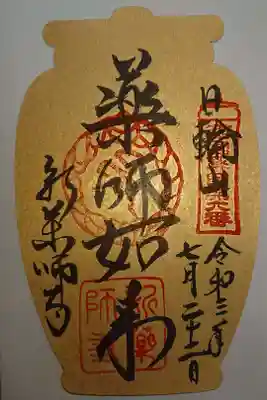 日輪山
令和三年
七月二十二日
薬師如来
新薬師寺
新薬
師寺